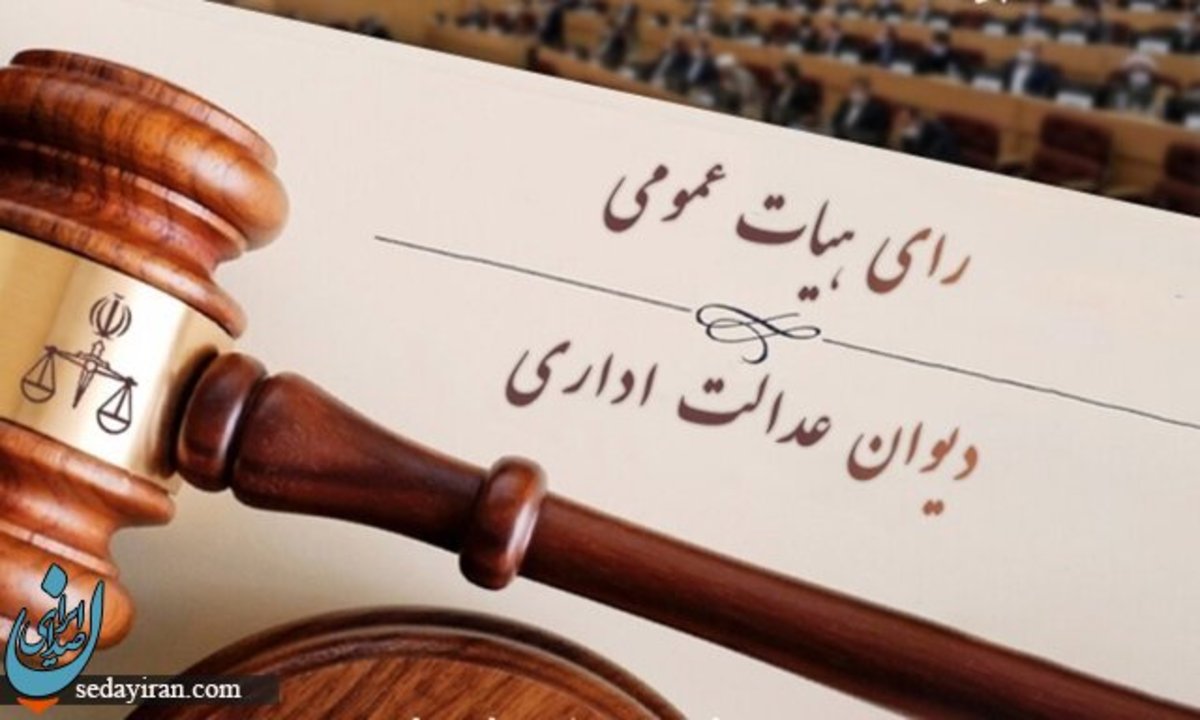 رای هیات عمومی
دیوان عدالت اداری
صدای ایران
sedayiran.com